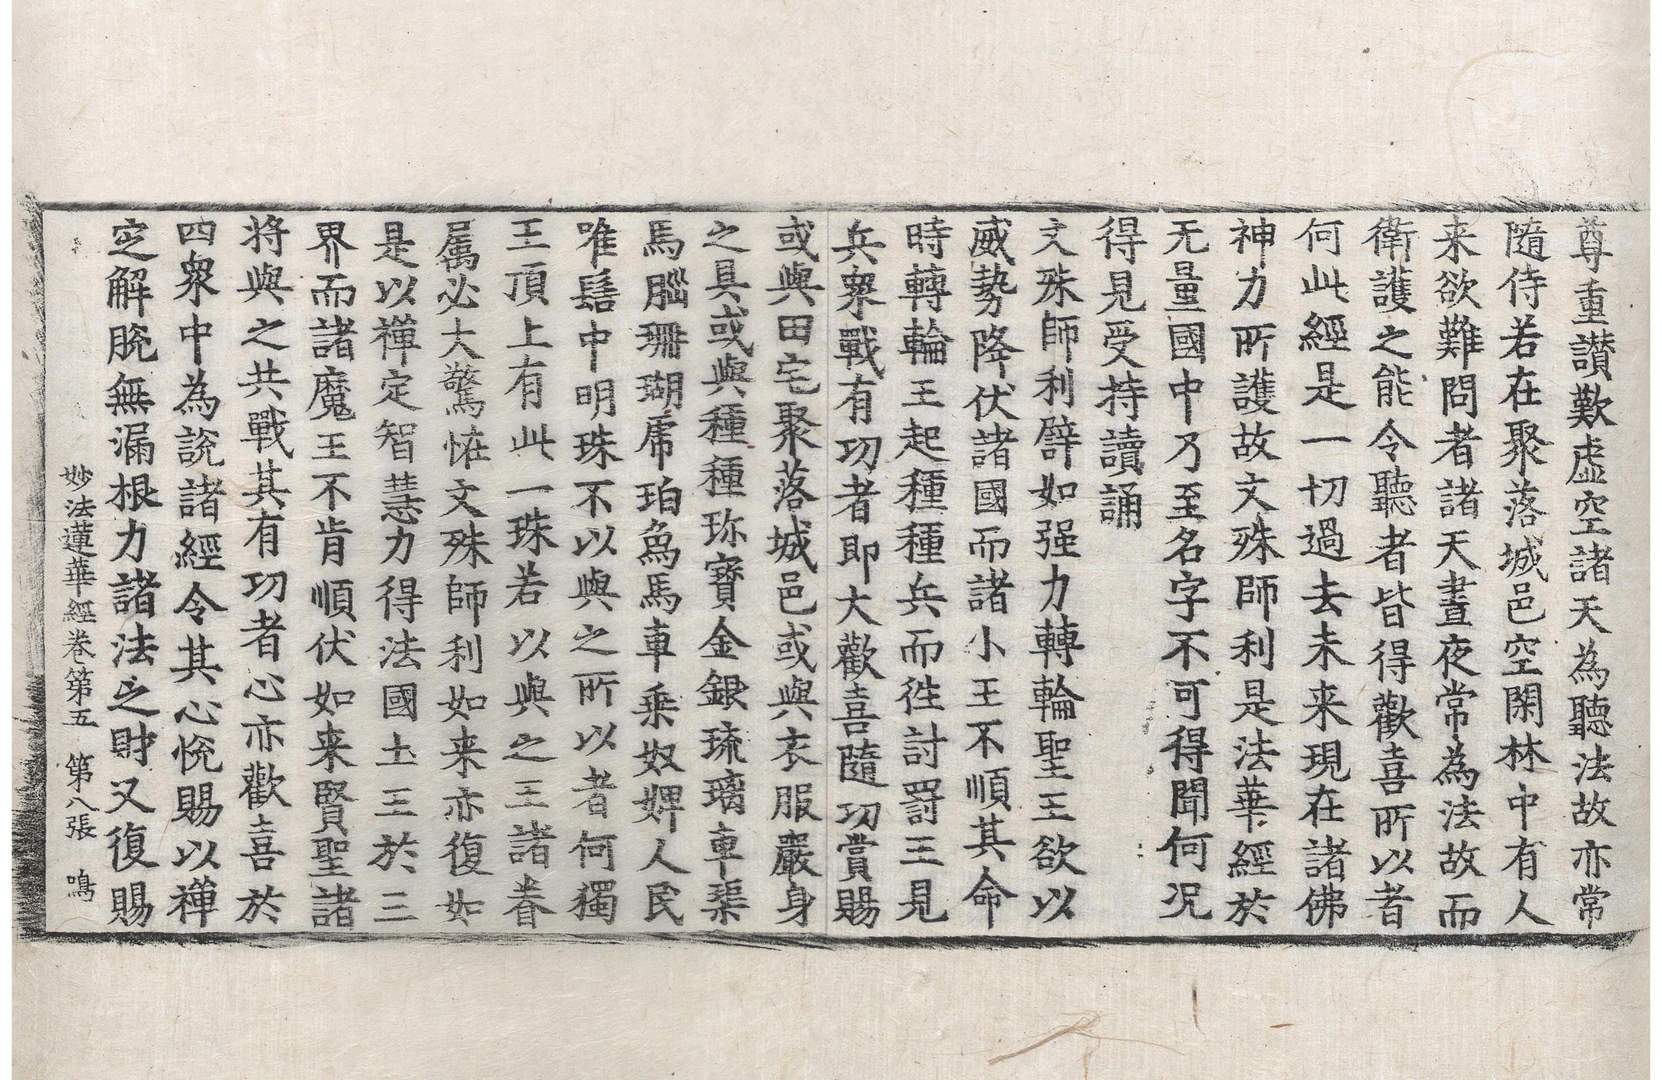 尊重讃歎虛空諸天為聽法故亦常
隨侍若在聚落城邑空閑林中有人
来欲難問者諸天晝夜常為法故而
衛護之能令聽者皆得歡喜所以者
何此經是一切過去未来現在諸佛
神力所護故文殊師利是法華經於
无量國中乃至名字不可得聞何况
得見受持讀誦
文殊師利譬如强力轉輪聖王欲以
威勢降伏諸國而諸小王不順其命
時轉輪王起種種兵而往討罰王見
兵衆戰有功者即大歡喜隨功賞賜
或與田宅聚落城邑或與衣服嚴身
之具或與種種珎寶金銀琉璃車𤦲
馬腦珊瑚虎珀象馬車乗奴婢人民
唯髻中明珠不以與之所以者何獨
王頂上有此一珠若以與之王諸眷
属必大驚恠文殊師利如来亦復如
是以禪定智慧力得法國土王於三
界而諸魔王不肯順伏如来賢聖諸
將與之共戰其有功者心亦歡喜於
四衆中為說諸經令其心悅賜以禪
定解脫無漏根力諸法之財又復賜
妙法蓮華經卷第五　第八張　鳴